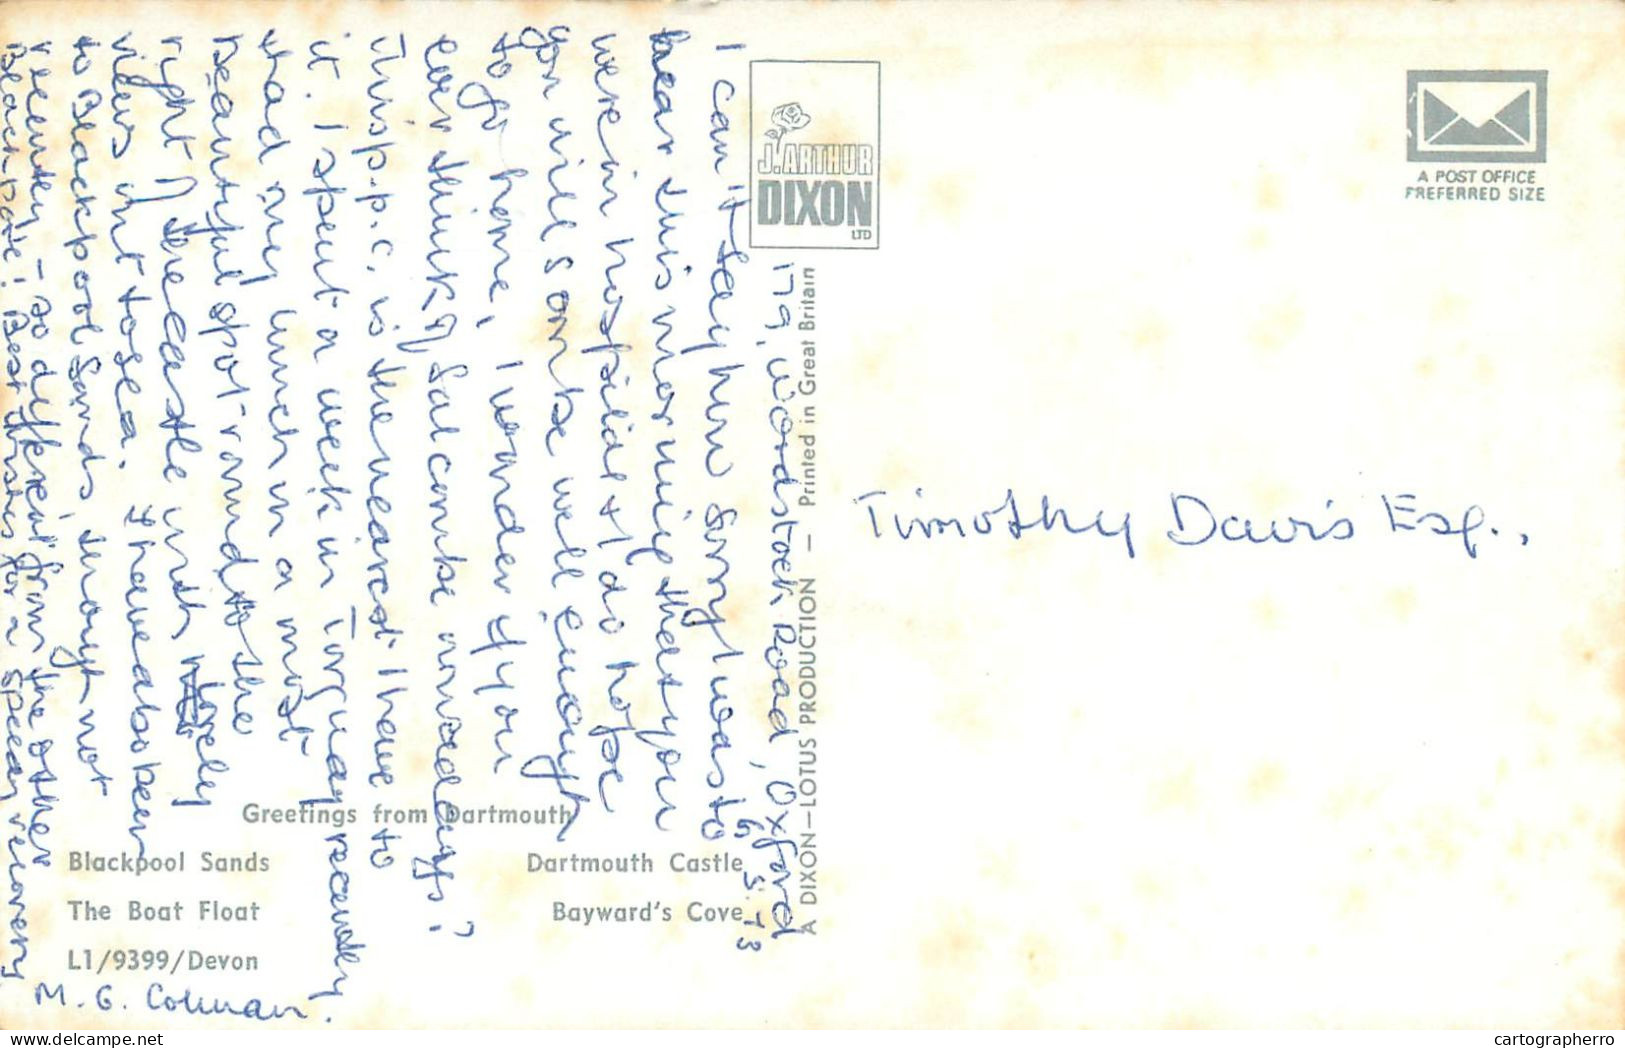 179, Woodstock Road, Oxford
6.5.73
I can't say how sorry I was to
hear this morning that you
were in hospital & I do hope
you will soon be well enough
to go home, I wonder if you
ever think of Salcombe nowadays?
This p.p.c. is the nearest I have to
it. I spent a week in Torquay recently
& had my lunch in a most
beautiful spot round to the
right of the castle with lovely
views out to sea. I have also been
to Blackpool Sands, though not
recently - so different from the other
Blackpool! Best wishes for a speedy recovery
M. G. Colman.
Greetings from Dartmouth
Blackpool Sands
Dartmouth Castle
The Boat Float
Bayward's Cove
L1/9399/Devon
J. ARTHUR
DIXON
LTD
A DIXON—LOTUS PRODUCTION — Printed in Great Britain
A POST OFFICE
PREFERRED SIZE
Timothy Davis Esq.,
cartographerro